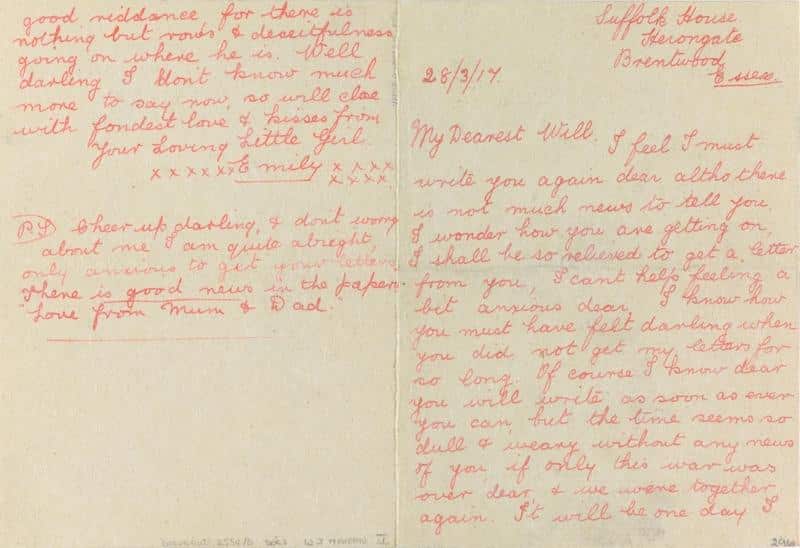 Suffolk House
Herongate
Brentwood
Essex.
28/3/17.
My Dearest Will. I feel I must
write you again dear altho there
is not much news to tell you.
I wonder how you are getting on,
I shall be so relieved to get a letter
from you, I cant help feeling a
bit anxious dear, I know how
you must have felt darling when
you did not get my letters for
so long. Of course I know dear
you will write as soon as ever
you can, but the time seems so
dull & weary without any news
of you if only this war was
over dear, & we were together
again. It will be one day I
good riddance for there is
nothing but rows & deceitfulness
going on where he is. Well
darling I don't know much
more to say now, so will close
with fondest love & kisses from
Your Loving Little Girl
x x x x x x Emily x x x x
x x x x
PS Cheer up darling, & dont worry
about me I am quite alright,
only anxious to get your letters
There is good news in the paper.
Love from Mum & Dad.
296